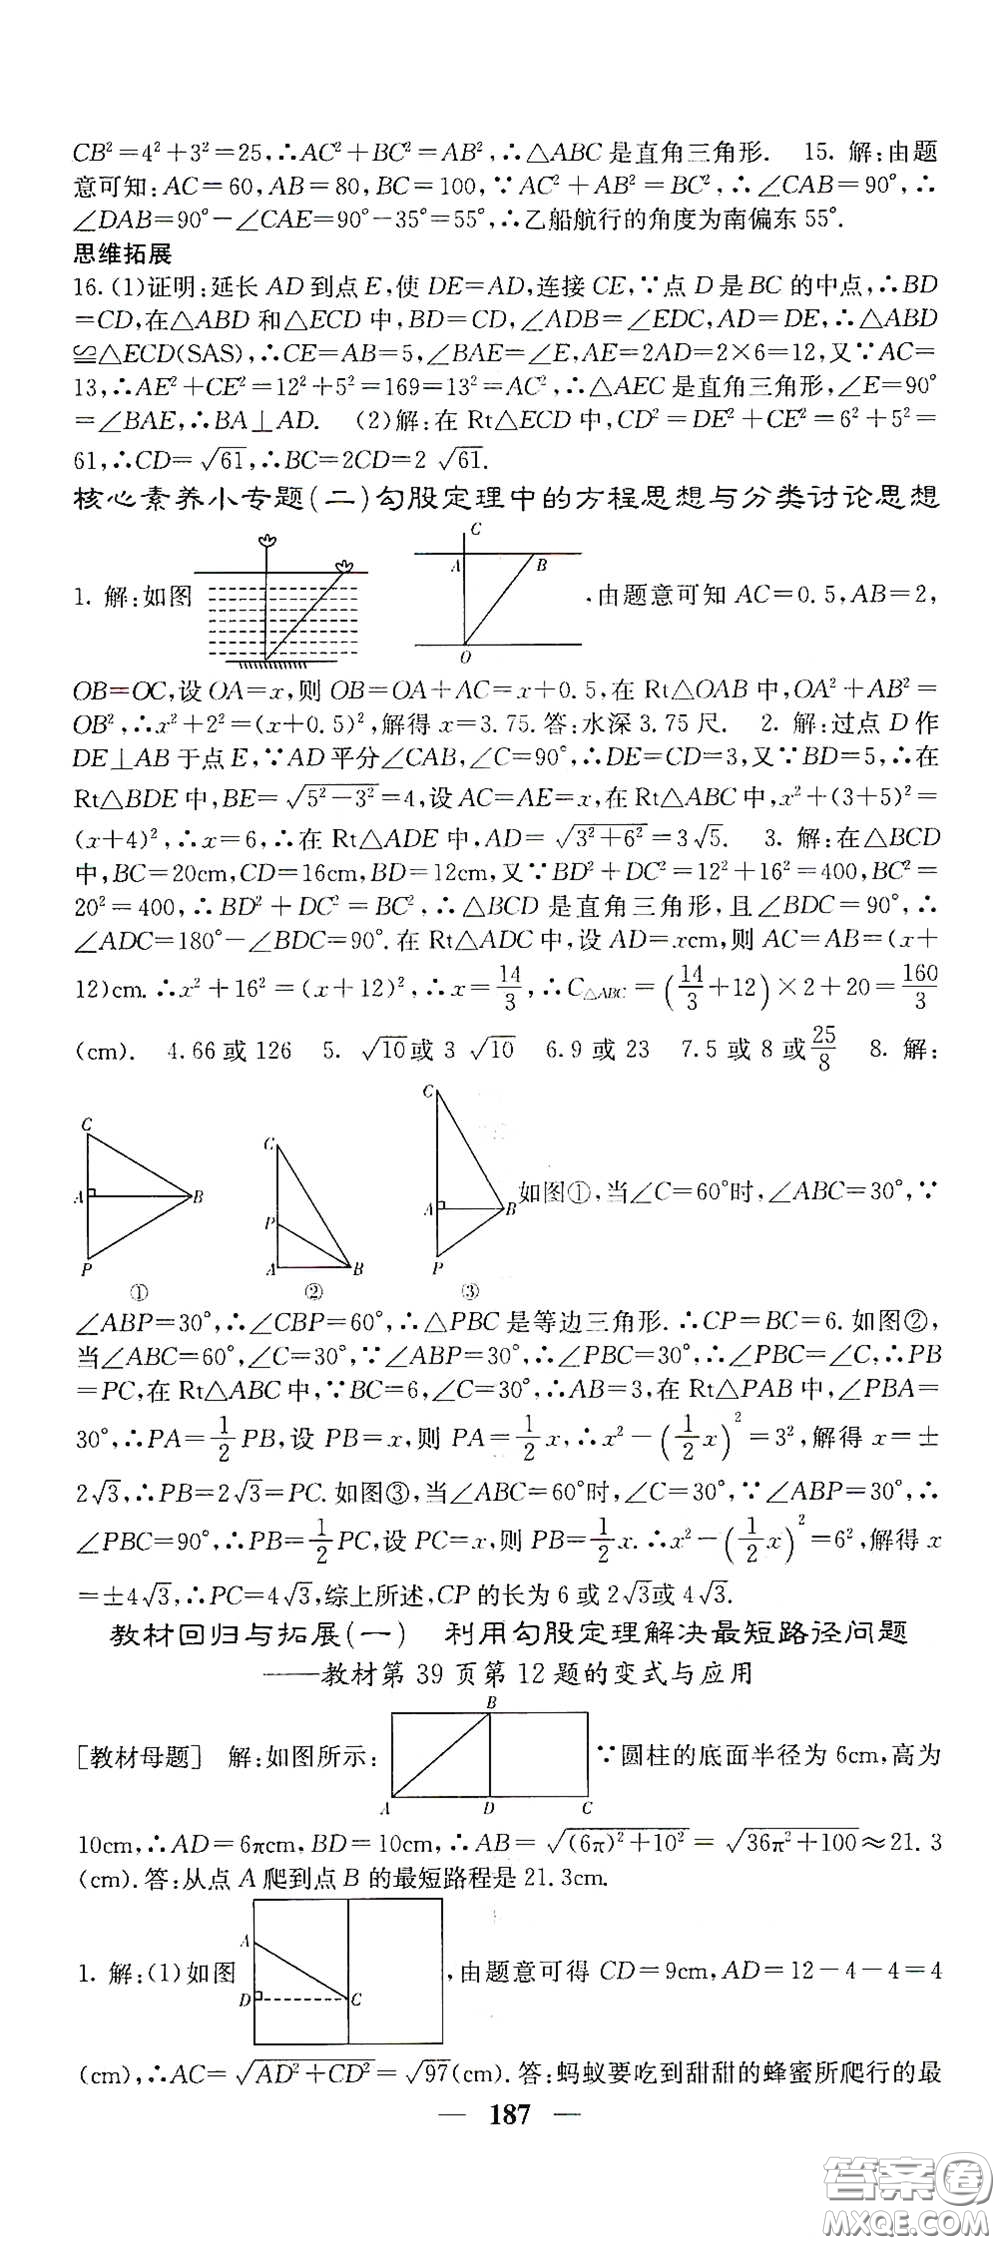 CB²=4²+3²=25,∴AC²+BC²=AB²,∴△ABC是直角三角形. 15. 解:由题
意可知:AC=60,AB=80,BC=100,∵AC²+AB²=BC²,∴∠CAB=90°,∴
∠DAB=90°-∠CAE=90°-35°=55°,∴乙船航行的角度为南偏东55°.
思维拓展
16. (1)证明:延长AD到点E,使DE=AD,连接CE,∵点D是BC的中点,∴BD
=CD,在△ABD和△ECD中,BD=CD,∠ADB=∠EDC,AD=DE,∴△ABD
≌△ECD(SAS),∴CE=AB=5,∠BAE=∠E,AE=2AD=2×6=12,又∵AC=
13,∴AE²+CE²=12²+5²=169=13²=AC²,∴△AEC是直角三角形,∠E=90°
=∠BAE,∴BA⊥AD. (2)解:在Rt△ECD中,CD²=DE²+CE²=6²+5²=
61,∴CD=√61,∴BC=2CD=2√61.
核心素养小专题(二)勾股定理中的方程思想与分类讨论思想
C
A B
O
1. 解:如图 ,由题意可知AC=0.5,AB=2,
OB=OC,设OA=x,则OB=OA+AC=x+0.5,在Rt△OAB中,OA²+AB²=
OB²,∴x²+2²=(x+0.5)²,解得x=3.75.答:水深3.75尺. 2. 解:过点D作
DE⊥AB于点E,∵AD平分∠CAB,∠C=90°,∴DE=CD=3,又∵BD=5,∴在
Rt△BDE中,BE=√(5²-3²)=4,设AC=AE=x,在Rt△ABC中,x²+(3+5)²=
(x+4)²,∴x=6,∴在Rt△ADE中,AD=√(3²+6²)=3√5. 3. 解:在△BCD
中,BC=20cm,CD=16cm,BD=12cm,又∵BD²+DC²=12²+16²=400,BC²=
20²=400,∴BD²+DC²=BC²,∴△BCD是直角三角形,且∠BDC=90°,∴
∠ADC=180°-∠BDC=90°.在Rt△ADC中,设AD=xcm,则AC=AB=(x+
12)cm.∴x²+16²=(x+12)²,∴x=14/3,∴C△ABC=(14/3+12)×2+20=160/3
(cm). 4.66或126 5. √10或3√10 6.9或23 7.5或8或25/8 8. 解:
C A B P ①
C P A B ②
C A B P ③
如图①,当∠C=60°时,∠ABC=30°,∵
∠ABP=30°,∴∠CBP=60°,∴△PBC是等边三角形.∴CP=BC=6.如图②,
当∠ABC=60°,∠C=30°,∵∠ABP=30°,∴∠PBC=30°,∴∠PBC=∠C,∴PB
=PC,在Rt△ABC中,∵BC=6,∠C=30°,∴AB=3,在Rt△PAB中,∠PBA=
30°,∴PA=1/2PB,设PB=x,则PA=1/2x,∴x²-(1/2x)²=3²,解得x=±
2√3,∴PB=2√3=PC.如图③,当∠ABC=60°时,∠C=30°,∵∠ABP=30°,∴
∠PBC=90°,∴PB=1/2PC,设PC=x,则PB=1/2x.∴x²-(1/2x)²=6²,解得x
=±4√3,∴PC=4√3,综上所述,CP的长为6或2√3或4√3.
教材回归与拓展(一) 利用勾股定理解决最短路径问题
——教材第39页第12题的变式与应用
B
A D C
[教材母题] 解:如图所示: ∵圆柱的底面半径为6cm,高为
10cm,∴AD=6πcm,BD=10cm,∴AB=√((6π)²+10²)=√(36π²+100)≈21.3
(cm).答:从点A爬到点B的最短路程是21.3cm.
A
D C
1. 解:(1)如图 ,由题意可得CD=9cm,AD=12-4-4=4
(cm),∴AC=√(AD²+CD²)=√97(cm).答:蚂蚁要吃到甜甜的蜂蜜所爬行的最
— 187 —
答案圈
MXQE.COM